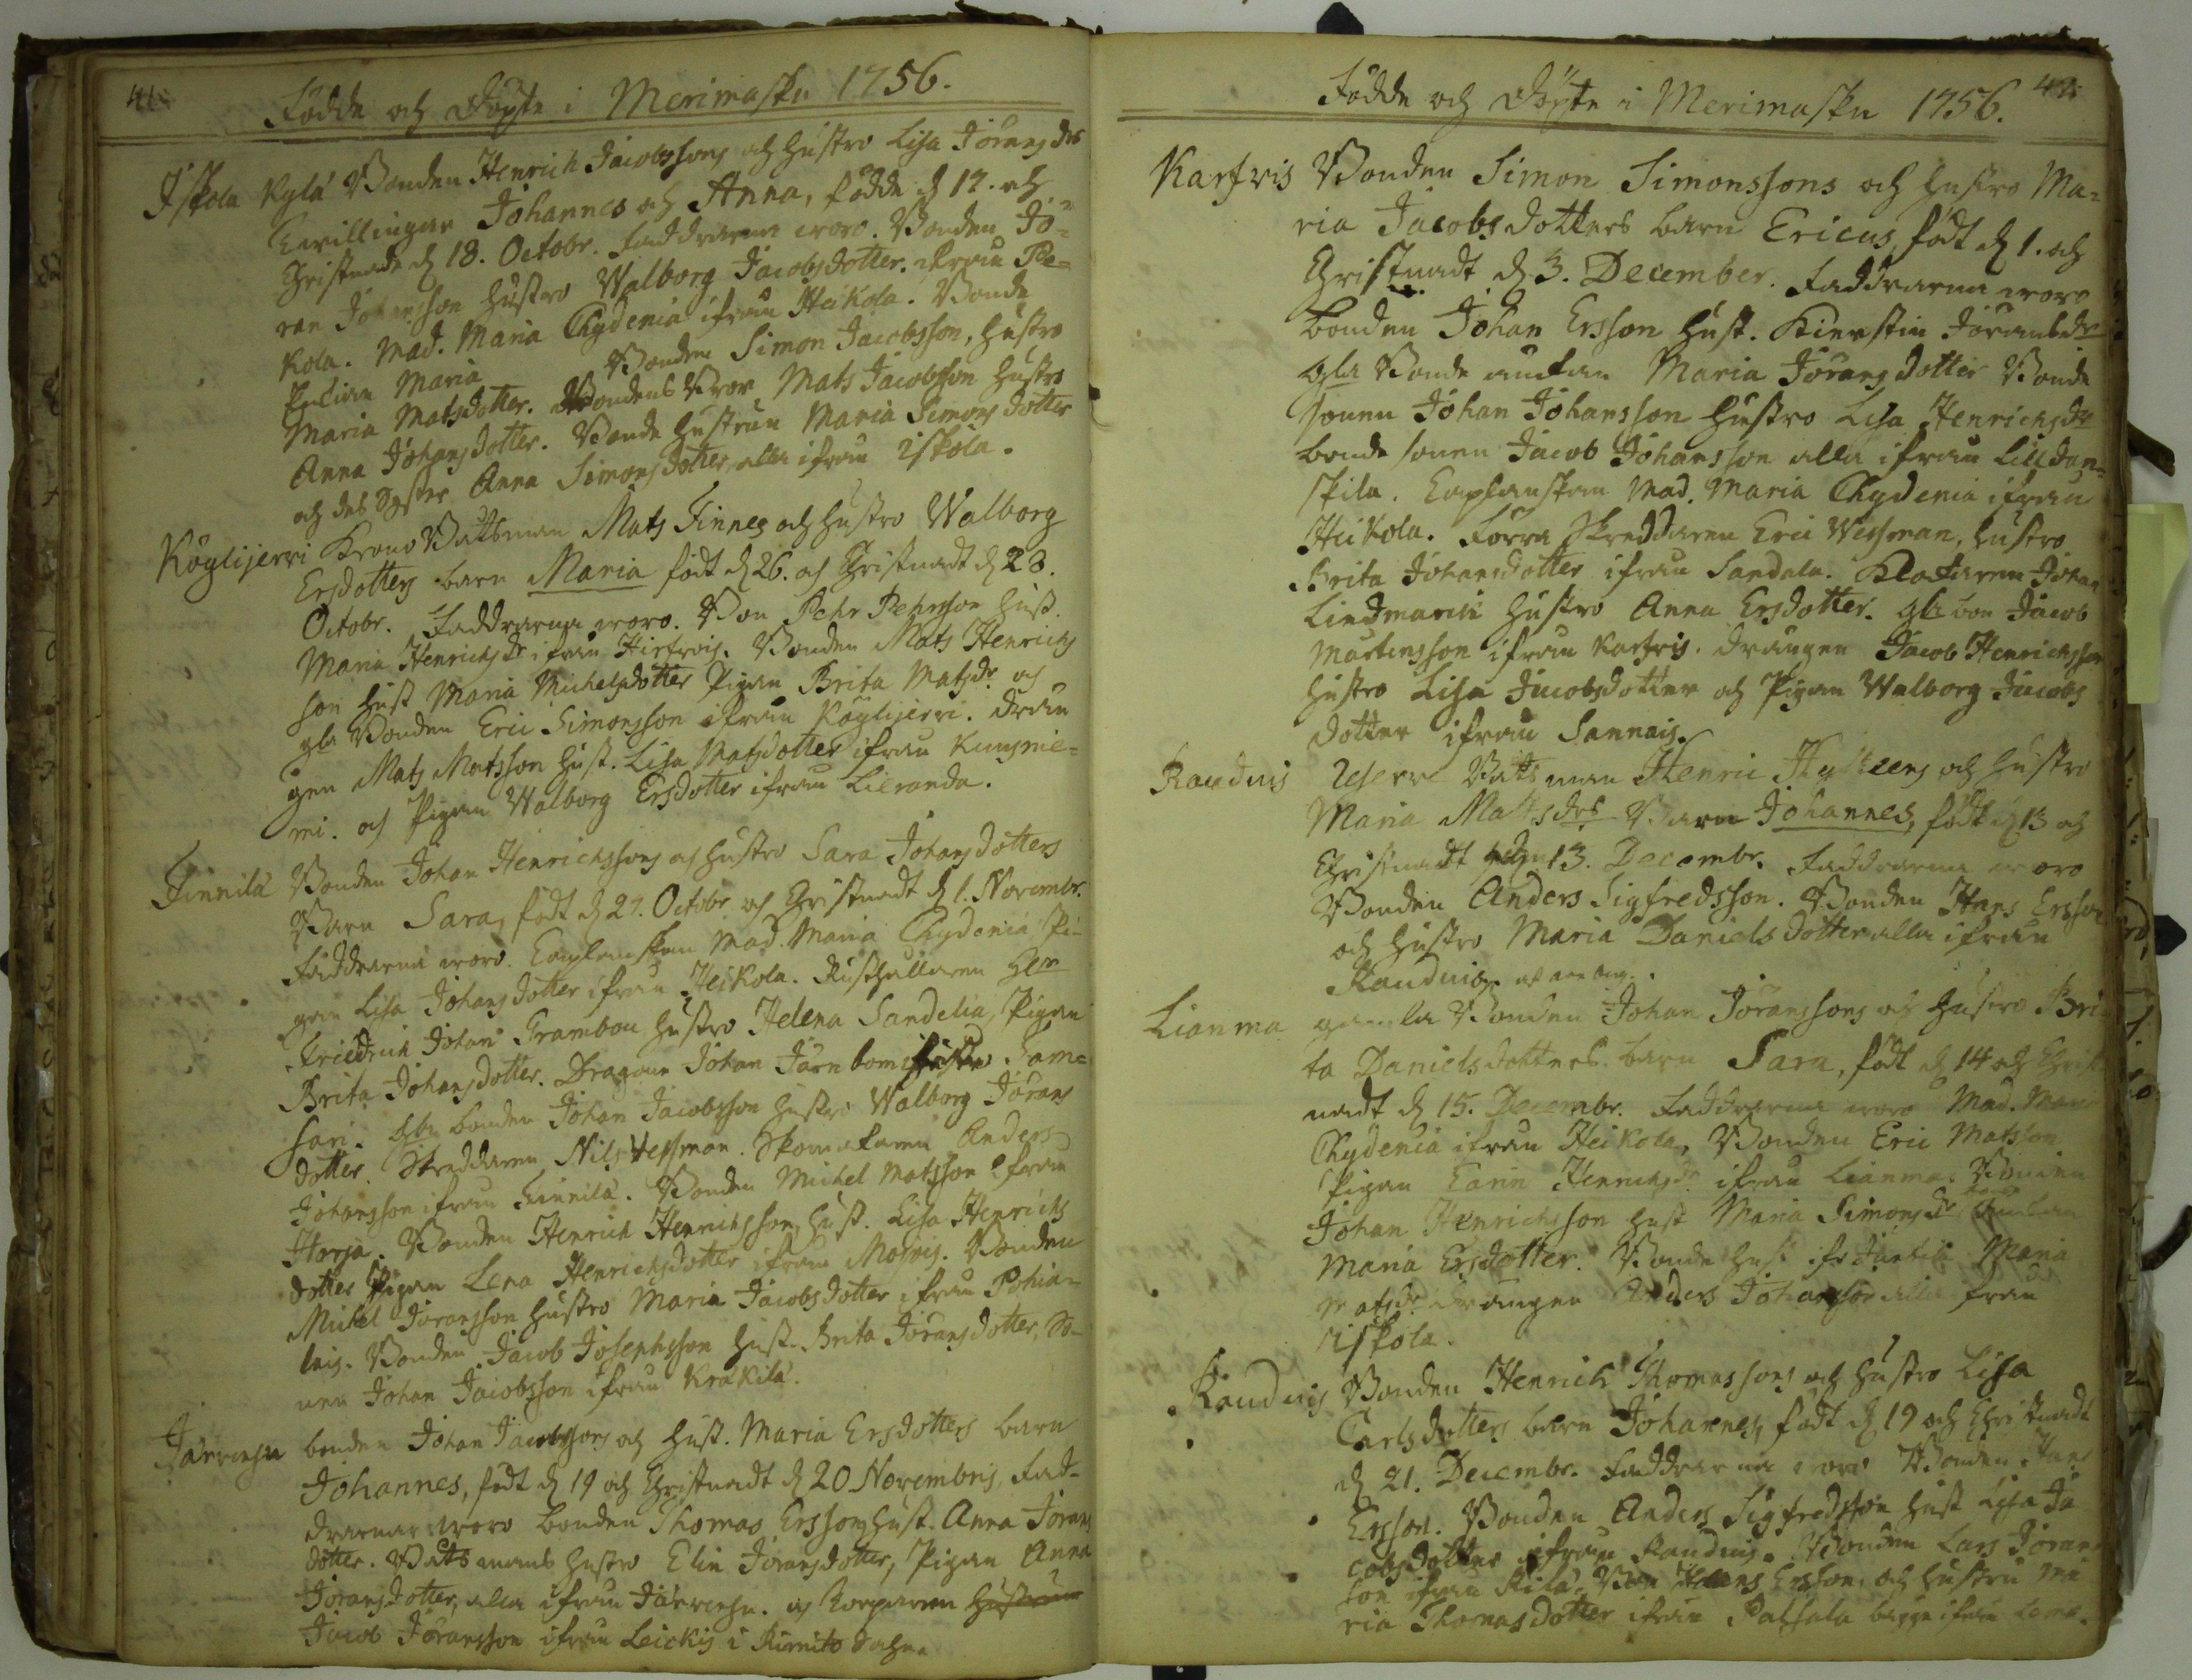 41.
Födde och Döpte i Merimasku 1756.
Iskola Kylä Bonden Henrich Jacobssons och hustro Lisa Jörans drs
Twillingar Johannes och Anna, födde d 17. och
Christnade d 18. Octobr. Faddrarna woro. Bonden Jö-
ran Johansson hustro Walborg Jacobsdotter. ifrån Pe-
kola. Mad. Maria Chydenia ifrån Heikola. Bonde
Maria Bonden Simon Jacobsson, hustro
Maria Matsdotter. Bondens Bror Mats Jacobsson hustro
Anna Johansdotter. Bonde hustrun Maria Simonsdotter
och des Syster Anna Simonsdotter, alla ifrån iskola.
Köylijerri Krono Båtsman Mats Finnes och hustro Walborg
Ersdotters barn Maria födt d 26. och Christnadt d 28.
Octobr. Faddrarna woro. Bon Pehr Pehrsson hust.
Maria Henrichsdr ifrån Hirfwois. Bonden Mats Henrichs
son hust Maria Michelsdotter Pigan Brita Matsdr och
gla Bonden Eric Simonsson ifrån Köylijerri. drän
gen Mats Matsson hust. Lisa Matsdotter ifrån Kuusnie-
mi. och Pigan Walborg Ersdotter ifrån Lieranda.
Finnilä Bonden Johan Henrichssons och hustro Sara Johansdotters
Barn Sara, födt d 27. Octobr och Christnadt d 1. Novembr.
Faddrarna woro. Caplanskan Mad. Maria Chydenia, Pi-
gan Lisa Johansdotter ifrån Heikola. Rusthållaren Hr
Friedrich Johan Grambou, hustro Helena Sandelia, Pigan
Brita Johansdotter. Dragoun Johan Järnbom ifrån Sam-
sari. Gla bonden Johan Jacobsson hustro Walborg Jörans
dotter. Skreddaren Nils Wessman. Skomakaren Anders
Johansson ifrån Finnilä. Bonden Michel Matsson ifrån
Horja. Bonden Henrich Henrichsson, hust. Lisa Henrichs
dotter Pigan Lena Henrichsdotter ifrån Moisois. Bonden
Michel Jöransson hustro Maria Jacobsdotter ifrån Pohia-
lais. Bonden Jacob Josephsson hust. Brita Jöransdotter, So-
nen Johan Jacobsson ifrån Kräkilä.
Järvensu bonden Johan Jacobssons och hust. Maria Ersdotters barn
Johannes, födt d 19 och Christnadt d 20 Novembris, Fad-
drarnar woro bonden Thomas Ersson, hust. Anna Jörans
dotter. Båtsmans hustro Elin Jöransdotter, Pigan Anna
Jöransdotter, alla ifrån Järvensu. och Korparen
Jacob Jöransson ifrån Leickis i Rimito Sohn.
42.
Födde och Döpte i Merimasku 1756.
Karfvis Bonden Simon Simonssons och hustro Ma-
ria Jacobsdotters barn Ericus, födt d 1. och
Christnadt d 3. December. Faddrarna woro
bonden Johan Ersson hust. Kierstin Jöransdr
Gla Bonde änkan Maria Jöransdotter Bonde
sonen Johan Johansson hustro Lisa Henrichsdr
bonde sonen Jacob Johansson alla ifrån Lilldan-
skila. Caplanskan Mad. Maria Chydenia ifrån
Heikola. Förra Skreddaren Eric Wessman, hustro
Brita Johansdotter ifrån Sandala. Klockaren Johan
Lindmarck hustro Anna Ersdotter. gla bon Jacob
Mårtensson ifrån Karfvis. drängen Jacob Henrichsson
hustro Lisa Jacobsdotter och Pigan Walborg Jacobs
dotter ifrån Sannais.
Rauduis Reserv Båtsman Henric Hylleens och hustro
Maria Mattsdrs Barn Johannes, födt d 13 och
Christnadt den 13. Decembr. Faddrarna woro
Bonden Anders Sigfredsson. Bonden Hans Ersson
och hustro Maria Daniels dotter alla ifrån
Rauduis.
Lianma gamla Bonden Johan Jöranssons och hustro Bri
ta Danielsdotters barn Sara, födt d 14 och Christ
nadt d 15. Decembr. Faddrarna woro Mad. Maria
Chydenia ifrån Heikola, Bonden Eric Matsson
Pigan Carin Henrichsdr ifrån Lianma. Bonden
Johan Henrichsson hust Maria Simonsdr
Maria Ersdotter. Bonde hust Maria
Matsdr drängen Anders Johansson alla ifrån
iskola.
Rauduis Bonden Henrich Thomassons och hustro Lisa
Carlsdotters barn Johannes, födt d 19 och Christnadt
d 21. Decembr. Faddrarna woro Bonden Hans
Ersson. Bonden Anders Sigfredsson hust Lisa Ja
cobsdotter ifrån Rauduis. Bonden Lars Jörans
son ifrån Kilä. Bon Hans Ersson och hustru Ma
ria Thomasdotter ifrån Palsala